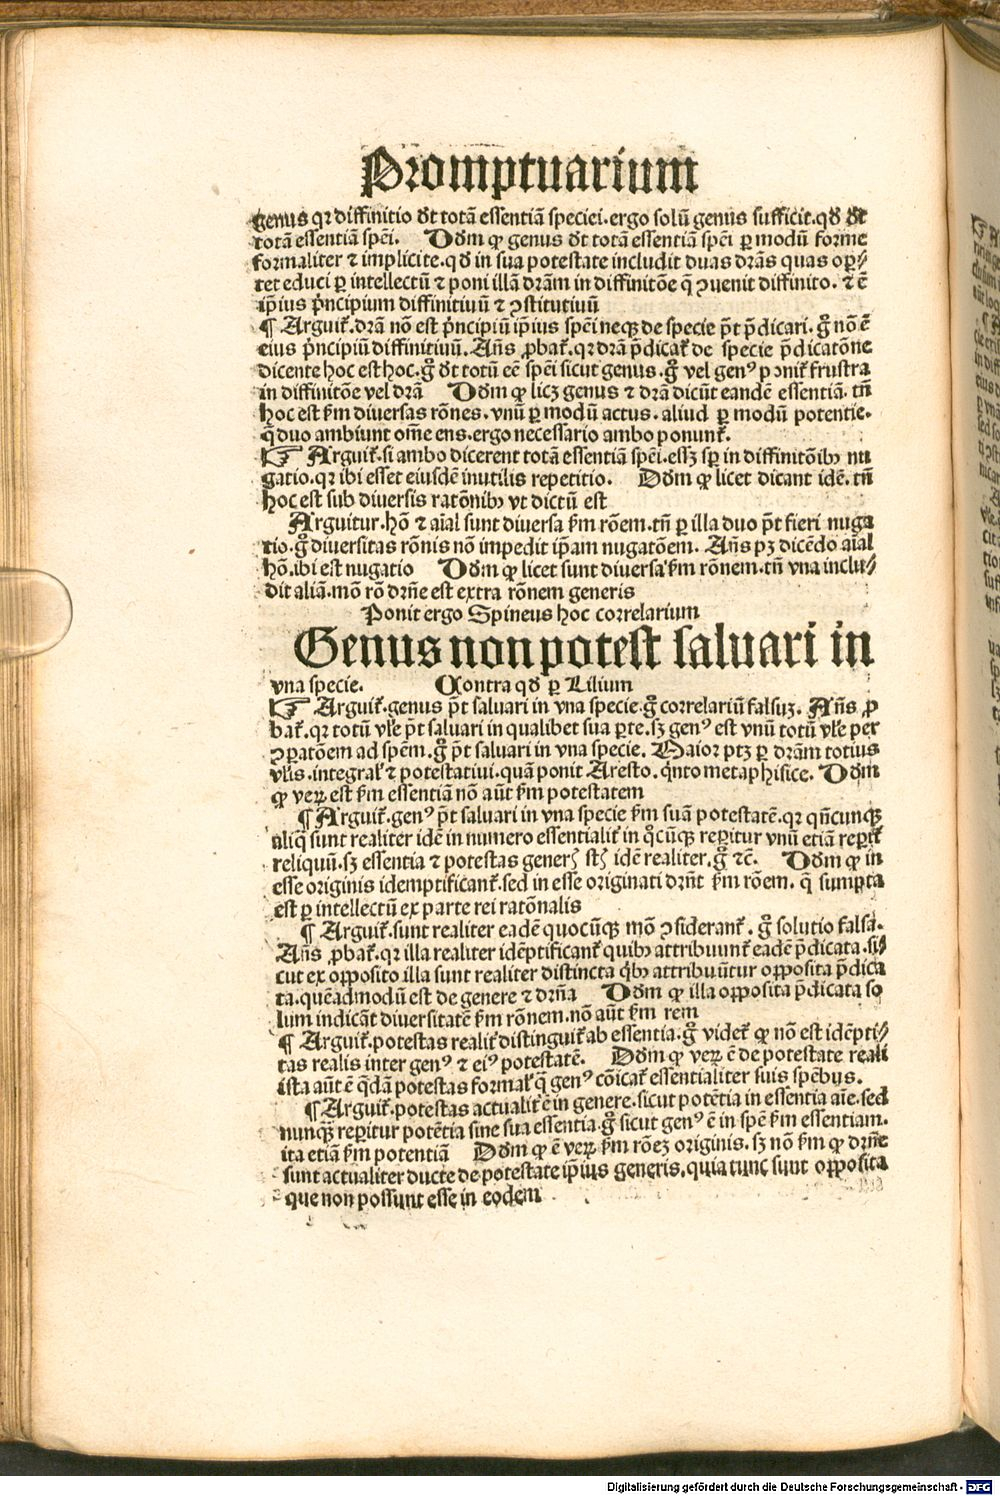 Promptuarium
genus qr diffinitio dt totā essentiā speciei. ergo solū genus sufficit. qd dt
totā essentiā spēi. Ddm ꝙ genus dt totā essentiā spēi ꝑ modū forme
formaliter ⁊ implicite. qd in sua potestate includit duas drās quas opꝑ⸗
tet educi ꝑ intellectū ⁊ poni illā drām in diffinitōe q̄ ꝯuenit diffinito. ⁊ ē
ip̄ius p̄ncipium diffinitiuū ⁊ ꝯstitutiuū
¶ Arguit̄. drā nō est p̄ncipiū ip̄ius spēi neqꝫ de specie p̄t p̄dicari. gͦ nō ē
eius p̄ncipiū diffinitiuū. Añs ꝓbat̄. qr drā p̄dicat̄ de specie p̄dicatōne
dicente hoc est hoc. gͦ dt totū eē spēi sicut genus. gͦ vel genꝰ ponit̄ frustra
in diffinitōe vel drā Ddm ꝙ licꝫ genus ⁊ drā dicūt eandē essentiā. tn̄
hoc est ẜm diuersas rōnes. vnū ꝑ modū actus. aliud ꝑ modū potentie.
q̄ duo ambiunt om̄e ens. ergo necessario ambo ponunt̄.
☞ Arguit̄. si ambo dicerent totā essentiā spēi. essꝫ sꝑ in diffinitōibꝫ nu
gatio. qr ibi esset eiusdē inutilis repetitio. Ddm ꝙ licet dicant idē. tn̄
hoc est sub diuersis ratōnibꝫ vt dictū est
Arguitur. hō ⁊ aīal sunt diuersa ẜm rōem. tn̄ ꝑ illa duo p̄t fieri nuga
tio. gͦ diuersitas rōnis nō impedit ip̄am nugatōem. Añs pꝫ dicēdo aīal
hō. ibi est nugatio Ddm ꝙ licet sunt diuersa ẜm rōnem. tn̄ vna inclu⸗
dit aliā. mō rō drn̄e est extra rōnem generis
Ponit ergo Spineus hoc correlarium
Genus non potest saluari in
vna specie. Contra qd ꝑ Lilium
☞ Arguit̄. genus p̄t saluari in vna specie. gͦ correlariū falsuꝫ. Añs ꝓ
bat̄. qr totū vle p̄t saluari in qualibet sua ꝑte. sꝫ genꝰ est vnū totū vle per
ꝯꝑatōem ad spēm. gͦ p̄t saluari in vna specie. Maior ptꝫ ꝑ drām totius
vlis. integral̄ ⁊ potestatiui. quā ponit Aresto. qͥnto metaphisice. Ddm
ꝙ veꝝ est ẜm essentiā nō aūt ẜm potestatem
¶ Arguit̄. genꝰ p̄t saluari in vna specie ẜm suā potestatē. qr qn̄cunqꝫ
aliq̄ sunt realiter idē in numero essentialit̄ in qͦcūqꝫ reꝑitur vnū etiā reꝑit̄
reliquū. sꝫ essentia ⁊ potestas generꝭ st̄ idē realiter. gͦ ⁊c̄. Ddm ꝙ in
esse originis idemptificant̄. sed in esse originati drn̄t ẜm rōem. q̄ sumpta
est ꝑ intellectū ex parte rei ratōnalis
¶ Arguit̄. sunt realiter eadē quocūqꝫ mō ꝯsiderant̄. gͦ solutio falsa.
Añs ꝓbat̄. qr illa realiter idēptificant̄ quibꝫ attribuunt̄ eadē p̄dicata. si⸗
cut ex opposito illa sunt realiter distincta qͥbꝫ attribuūtur opposita p̄dica
ta. quēadmodū est de genere ⁊ drn̄a Ddm ꝙ illa opposita p̄dicata so
lum indicāt diuersitatē ẜm rōnem. nō aūt ẜm rem
¶ Arguit̄. potestas realit̄ distinguit̄ ab essentia. gͦ videt̄ ꝙ nō est idēpti⸗
tas realis inter genꝰ ⁊ eiꝰ potestatē. Ddm ꝙ veꝝ ē de potestate reali
ista aūt ē qͣdā potestas formal̄ q̄ genꝰ cōicat̄ essentialiter suis spēbus.
¶ Arguit̄. potestas actualit̄ ē in genere. sicut potētia in essentia aīe. sed
nunqꝫ reꝑitur potētia sine sua essentia. gͦ sicut genꝰ ē in spē ẜm essentiam.
ita etiam ẜm potentiā Ddm ꝙ ē veꝝ ẜm rōeꝫ originis. sꝫ nō ẜm ꝙ drn̄e
sunt actualiter ducte de potestate ip̄ius generis. quia tunc sunt opposita
que non possunt esse in eodem
Digitalisierung gefördert durch die Deutsche Forschungsgemeinschaft - DFG